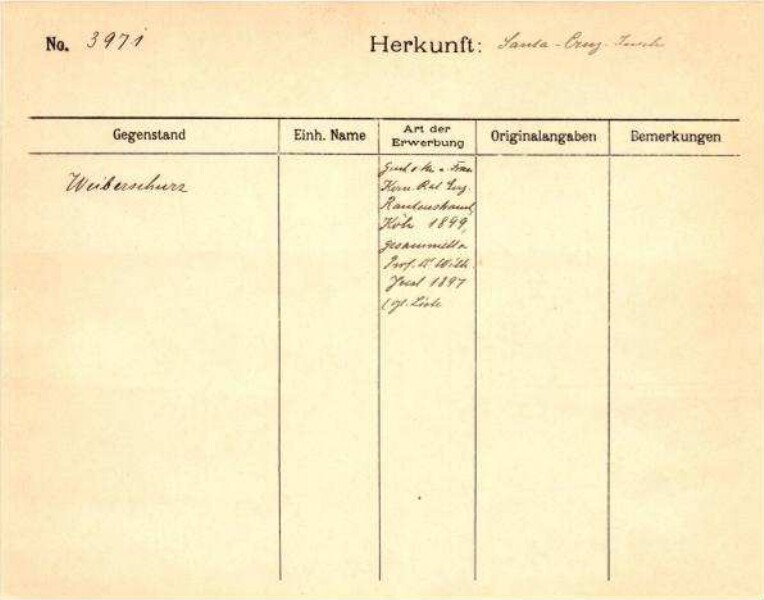 No. 3971 Herkunft: Santa-Cruz-Inseln
Gegenstand Einh. Name Art der Erwerbung Originalangaben Bemerkungen
Weiberschurz
Frau
Kom. Rat Eug.
Rautenstrauch,
Köln 1899,
gesammelt v.
Prof. Dr Wilh.
Joest 1897
Liste